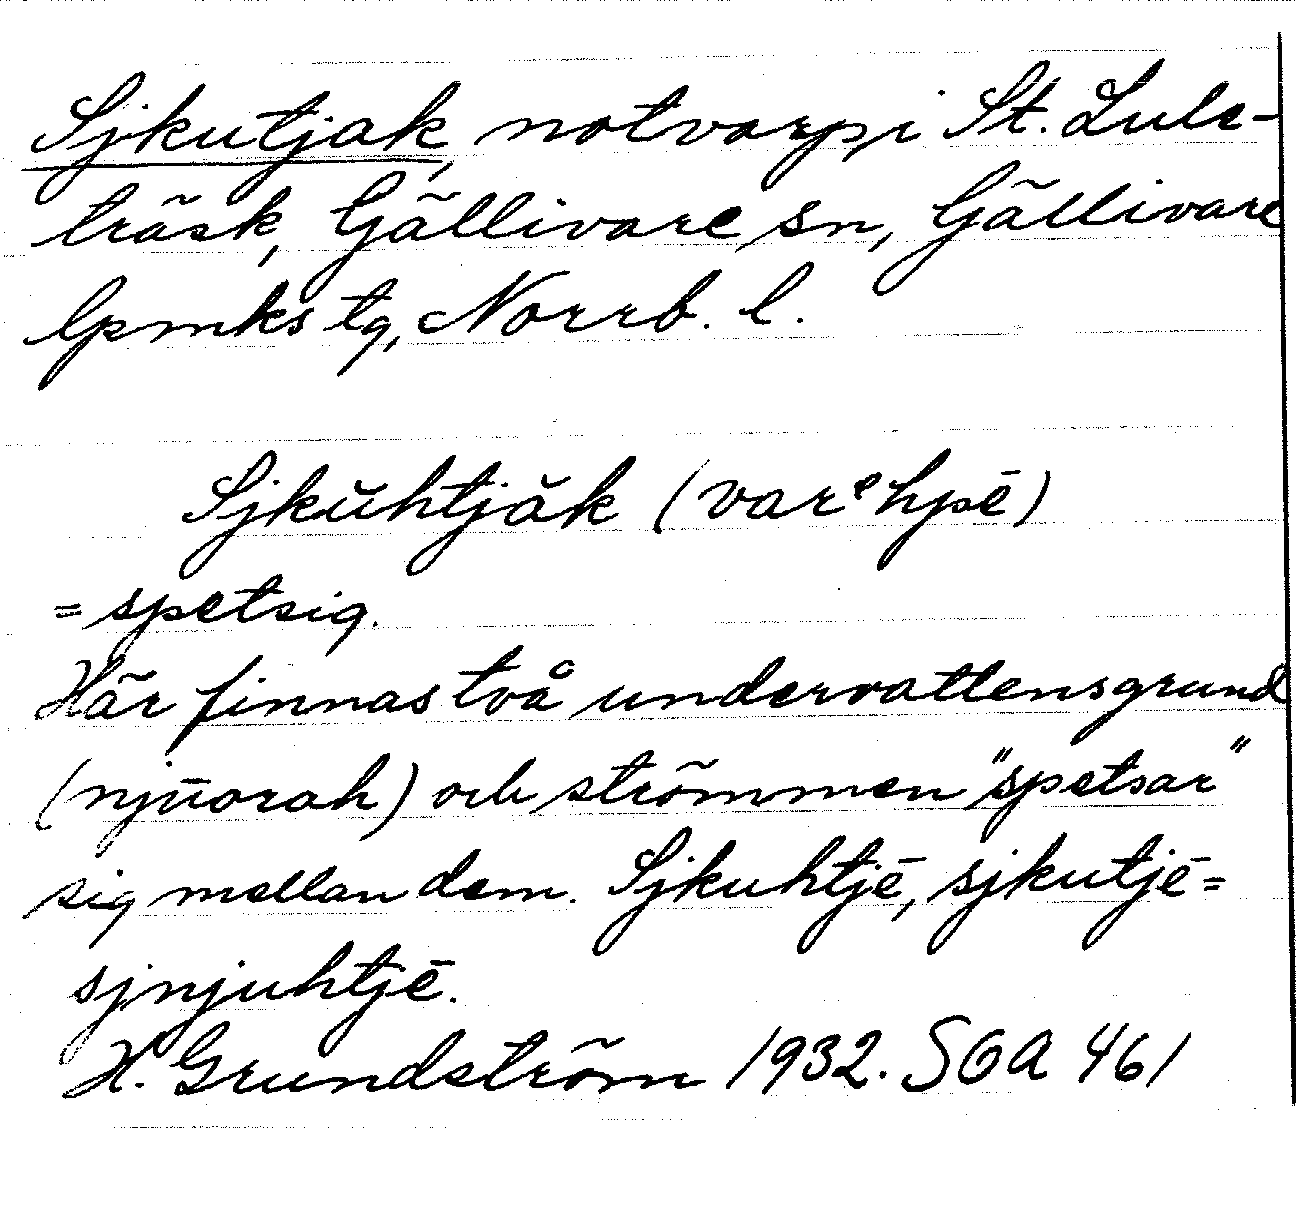 Sjkutjak, notvarp i St. Lule-
träsk, Gällivare sn, Gällivare
lpmks tg, Norrb. l.
Sjkŭhtjăk (varᵉhpē)
= spetsig.
Här finnas två undervattensgrund
(njūorah) och strömmen "spetsar"
sig mellan dem. Sjkuhtjē, sjkutjē =
sjnjuhtjē.
H. Grundström 1932. SOA 461